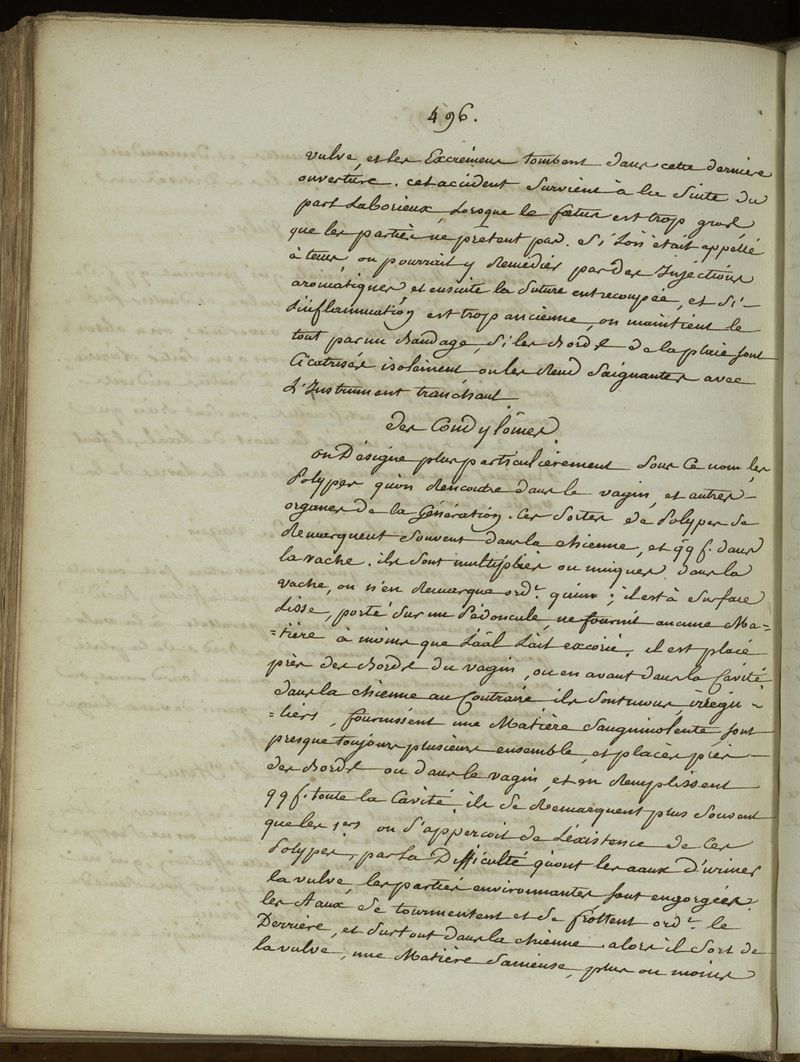 496.
vulve, et les Excrémens tombent dans cette derniere
ouverture. cet accident Survient à la Suite du
part Laborieux, Lorsque le fœtus est trop gros
que les parties ne prêtent pas. Si Lon était appellé
à tems, on pourrait y Remedier par des Injections
aromatiques, et ensuite la Suture entrecoupée, et Si -
L'inflammation est trop ancienne, on maintient le
tout par un Bandage, Si les Bords de la plaie sont
Cicatrisés isolément on les Rend Saignantes avec
L'Instrument tranchant.
des Condylômes.
on Désigne plus particulièrement Sous Ce nom, les
Polypes qu'on Rencontre dans le vagin, et autres -
organes de la Génération. Ces Sortes de Polypes Se
Remarquent Souvent dans la chienne, et qq f. dans
la vache. ils Sont multipliés ou uniques. dans la
vache, on n'en Remarque ordr. qu'un; il est à Surface
Lisse, porté Sur un Pédoncule, ne fournit aucune Ma=
=tière à moins que L'aâl L'ait excorié. il est placé
près des Bords du vagin, ou en avant dans la Cavité
dans la chienne au Contraire ils Sont mous irrégu=
=liers, fournissent une Matière Sanguinolente, sont
presque toujours plusieurs ensemble, et placés près -
des Bords ou dans le vagin, et en Remplissent
qq f. toute la Cavité. ils Se Remarquent plus Souvent
que les 1ers on S'apperçoit de L'éxistence de Ces
Polypes, par la Difficulté qu'ont les aaux d'uriner
la vulve, les parties environnantes, sont engorgées.
les Aaux Se tourmentent et Se frottent ordr. le
Derrière, et Surtout dans la chienne. alors il Sort de
la vulve, une Matière Sanieuse, plus ou moins